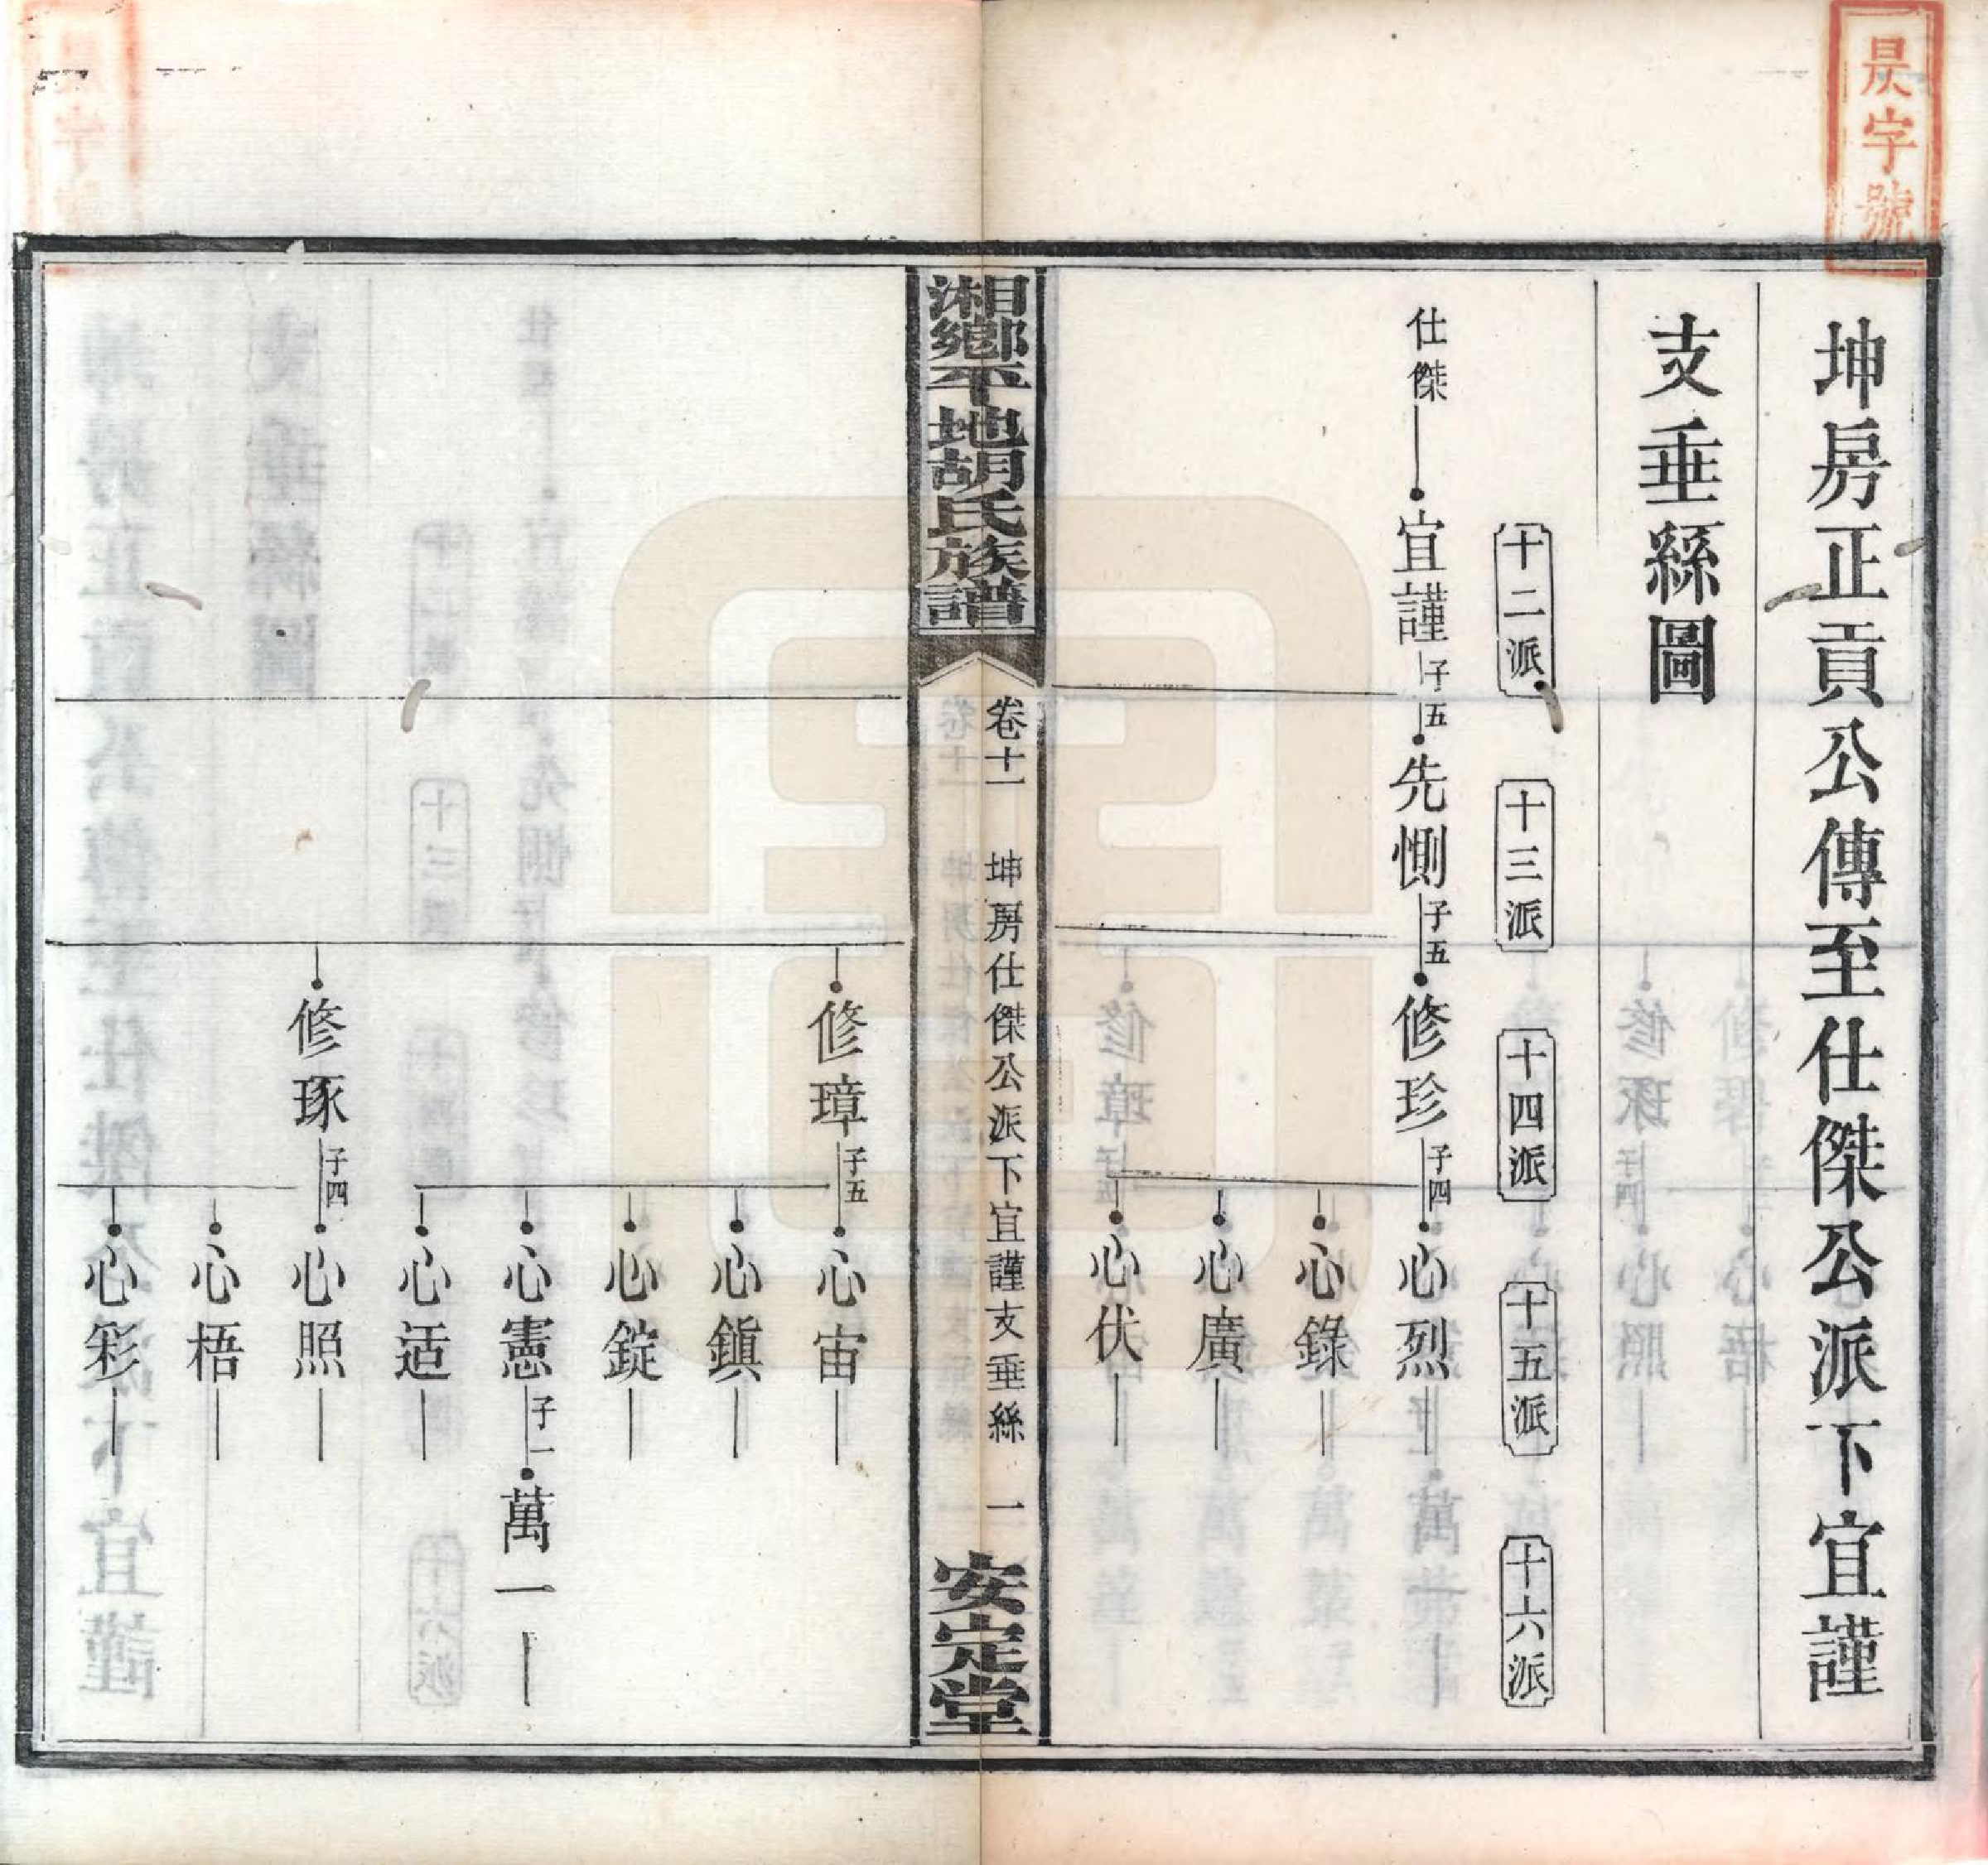 昃字號
坤房正貢公傳至仕傑公派下宜謹
支垂絲圖
十二派
十三派
十四派
十五派
十六派
仕傑
宜謹
子五
先惻
子五
修珍
子四
心烈
心錄
心廣
心伏
湘鄉平地胡氏族譜
卷十一
坤房仕傑公派下宜謹支垂絲
一
安定堂
修璋
子五
心宙
心鎭
心錠
心憲
子一
萬一
心适
修琢
子四
心照
心梧
心彩